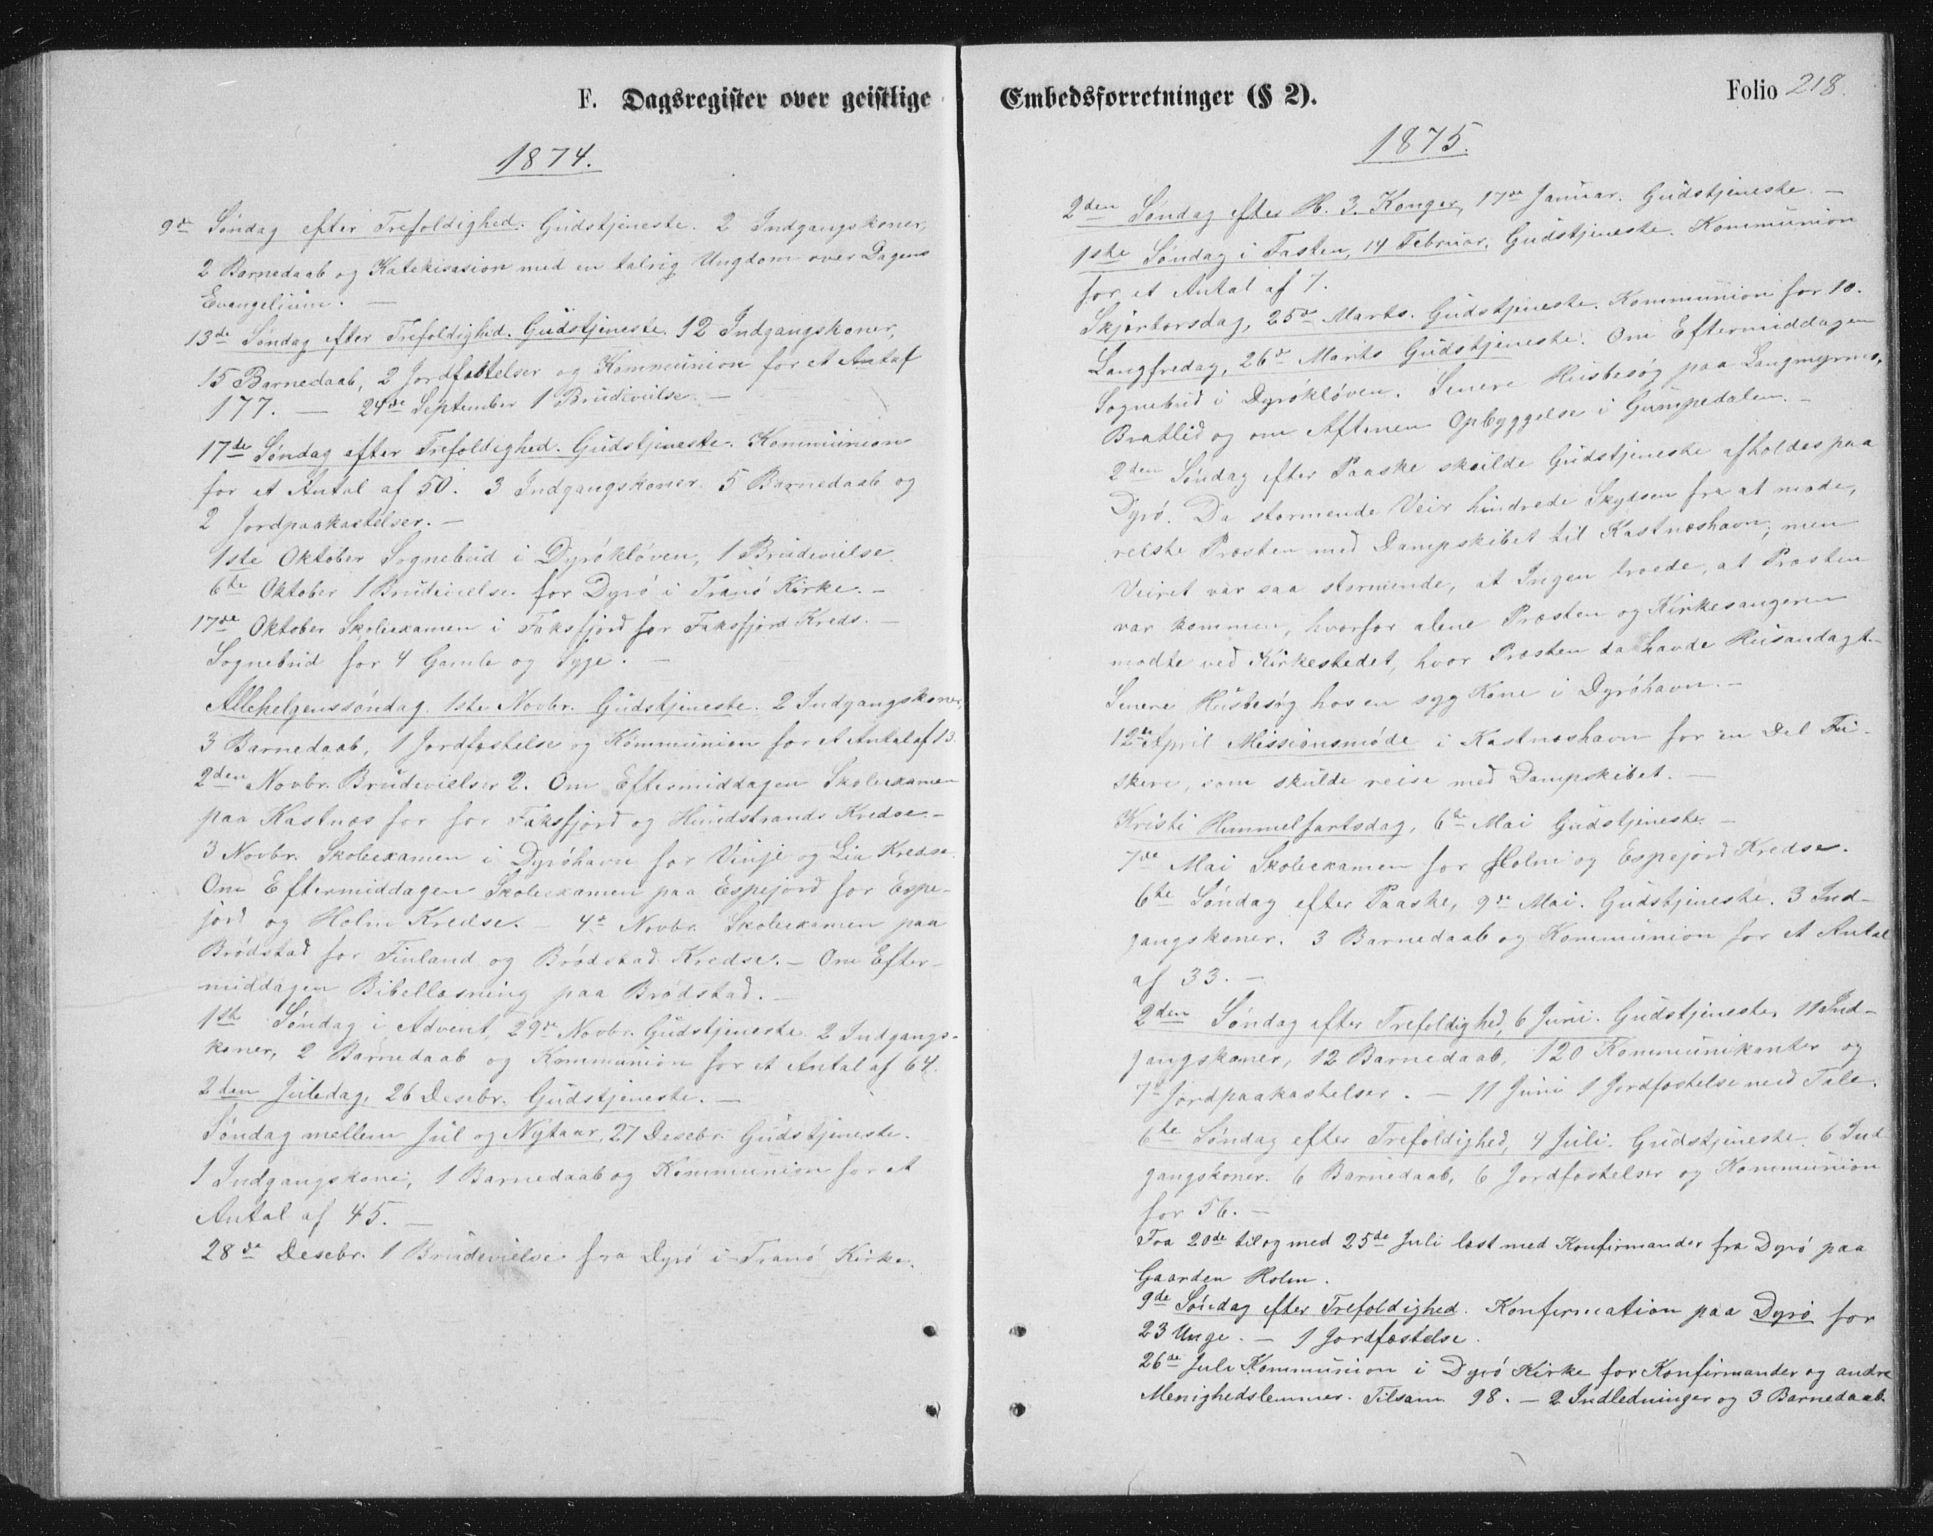 F. Dagsregister over geistlige
1874.
9de Søndag efter Trefoldighed. Gudstjeneste. 2 Indgangskoner,
2 Barnedaab og Katekisasion med en talrig Ungdom over Dagens
Evangelium. —
13de Søndag efter Trefoldighed. Gudstjeneste. 12 Indgangskoner,
15 Barnedaab, 2 Jordfæstelser og Kommunion for et Antal af
177. — 24de September 1 Brudevielse —
17de Søndag efter Trefoldighed. Gudstjeneste. Kommunion
for et Antal af 50. 3 Indgangskoner. 5 Barnedaab og
2 Jordpaakastelser. —
1ste Oktober Sognebud i Dyrökløven, 1 Brudevielse.
6te Oktober 1 Brudevielse for Dyrö i Tranö Kirke. —
17de Oktober Skoleexamen i Faksfjord for Faksfjord Kreds. —
Sognebud for 4 Gamle og Syge. —
Allehelgenssöndag 1ste Novbr. Gudstjeneste. 2 Indgangskoner,
3 Barnedaab, 1 Jordfæstelse og Kommunion for et Antal af 13.
2den Novbr. Brudevielser 2. Om Eftermiddagen Skoleexamen
paa Kastnæs for for Faksfjord og Hundstrands Kredse. —
3 Novbr. Skoleexamen i Dyröhavn for Vinje og Lia Kredse.
Om Eftermiddagen Skoleexamen paa Espejord for Espe-
jord og Holm Kredse. — 4de Novbr. Skoleexamen paa
Brödstad for Finland og Brödstad Kredse. — Om Efter-
middagen Bibellæsning paa Brödstad. —
1ste Søndag i Advent, 29de Novbr. Gudstjeneste 2 Indgangs-
koner, 2 Barnedaab og Kommunion for et Antal af 64.
2den Juledag, 26 Desebr. Gudstjeneste. —
Søndag mellem Jul og Nytaar, 27 Desebr. Gudstjeneste.
1 Indgangskone, 1 Barnedaab og Kommunion for et
Antal af 45. —
28de Desebr. 1 Brudevielse fra Dyrö i Tranö Kirke.
Embedsforretninger (§ 2).
Folio 218.
1875.
2den Søndag efter H. 3. Konger, 17de Januar. Gudstjeneste. —
1ste Søndag i Fasten, 14 Februar, Gudstjeneste. Kommunion
for et Antal af 7.
Skjærtorsdag, 25de Marts. Gudstjeneste. Kommunion for 10.
Langfredag, 26de Marts Gudstjeneste. Om Eftermiddagen
Sognebud i Dyrökløven. Senere Husbesøg paa Langmyrnes,
Bratlid og om Aftenen Opbyggelse i Gumpedalen. —
2den Søndag efter Paaske skulde Gudstjeneste afholdes paa
Dyrö. Da stormende Veir hindrede Skydsen fra at møde,
reiste Præsten med Dampskibet til Kastneshavn, men
Veiret var saa stormende, at Ingen troede, at Præsten
var kommen, hvorfor alene Præsten og Kirkesangeren
mødte ved Kirkestedet, hvor Præsten da havde Husandagt —
Senere Husbesøg hos en syg Kone i Dyröhavn. —
12te April Missionsmøde i Kastneshavn for en Del Fi-
skere, som skulde reise med Dampskibet. —
Kristi Himmelfartsdag, 6te Mai Gudstjeneste —
7de Mai Skoleexamen for Holm og Espejord Kredse.
6te Søndag efter Paaske, 9de Mai. Gudstjeneste. 3 Ind-
gangskoner. 3 Barnedaab og Kommunion for et Antal
af 33. —
2den Søndag efter Trefoldighed, 6 Juni. Gudstjeneste, 11 Ind-
gangskoner, 12 Barnedaab, 120 Kommunikanter og
7 Jordpaakastelser. — 11 Juni 1 Jordfæstelse med Tale.
6te Søndag efter Trefoldighed, 4 Juli. Gudstjeneste. 6 Ind
gangskoner. 6 Barnedaab, 6 Jordfæstelser og Kommunion
for 56. —
Fra 20de til og med 25de Juli læst med Konfirmander fra Dyrö paa
Gaarden Holm.
9de Søndag efter Trefoldighed. Konfirmation paa Dyrö for
23 Unge. — 1 Jordfæstelse.
26de Juli Kommunion i Dyrö Kirke for Konfirmander og andre
Menighedslemmer. Tilsam. 98. — 2 Indledninger og 3 Barnedaab.